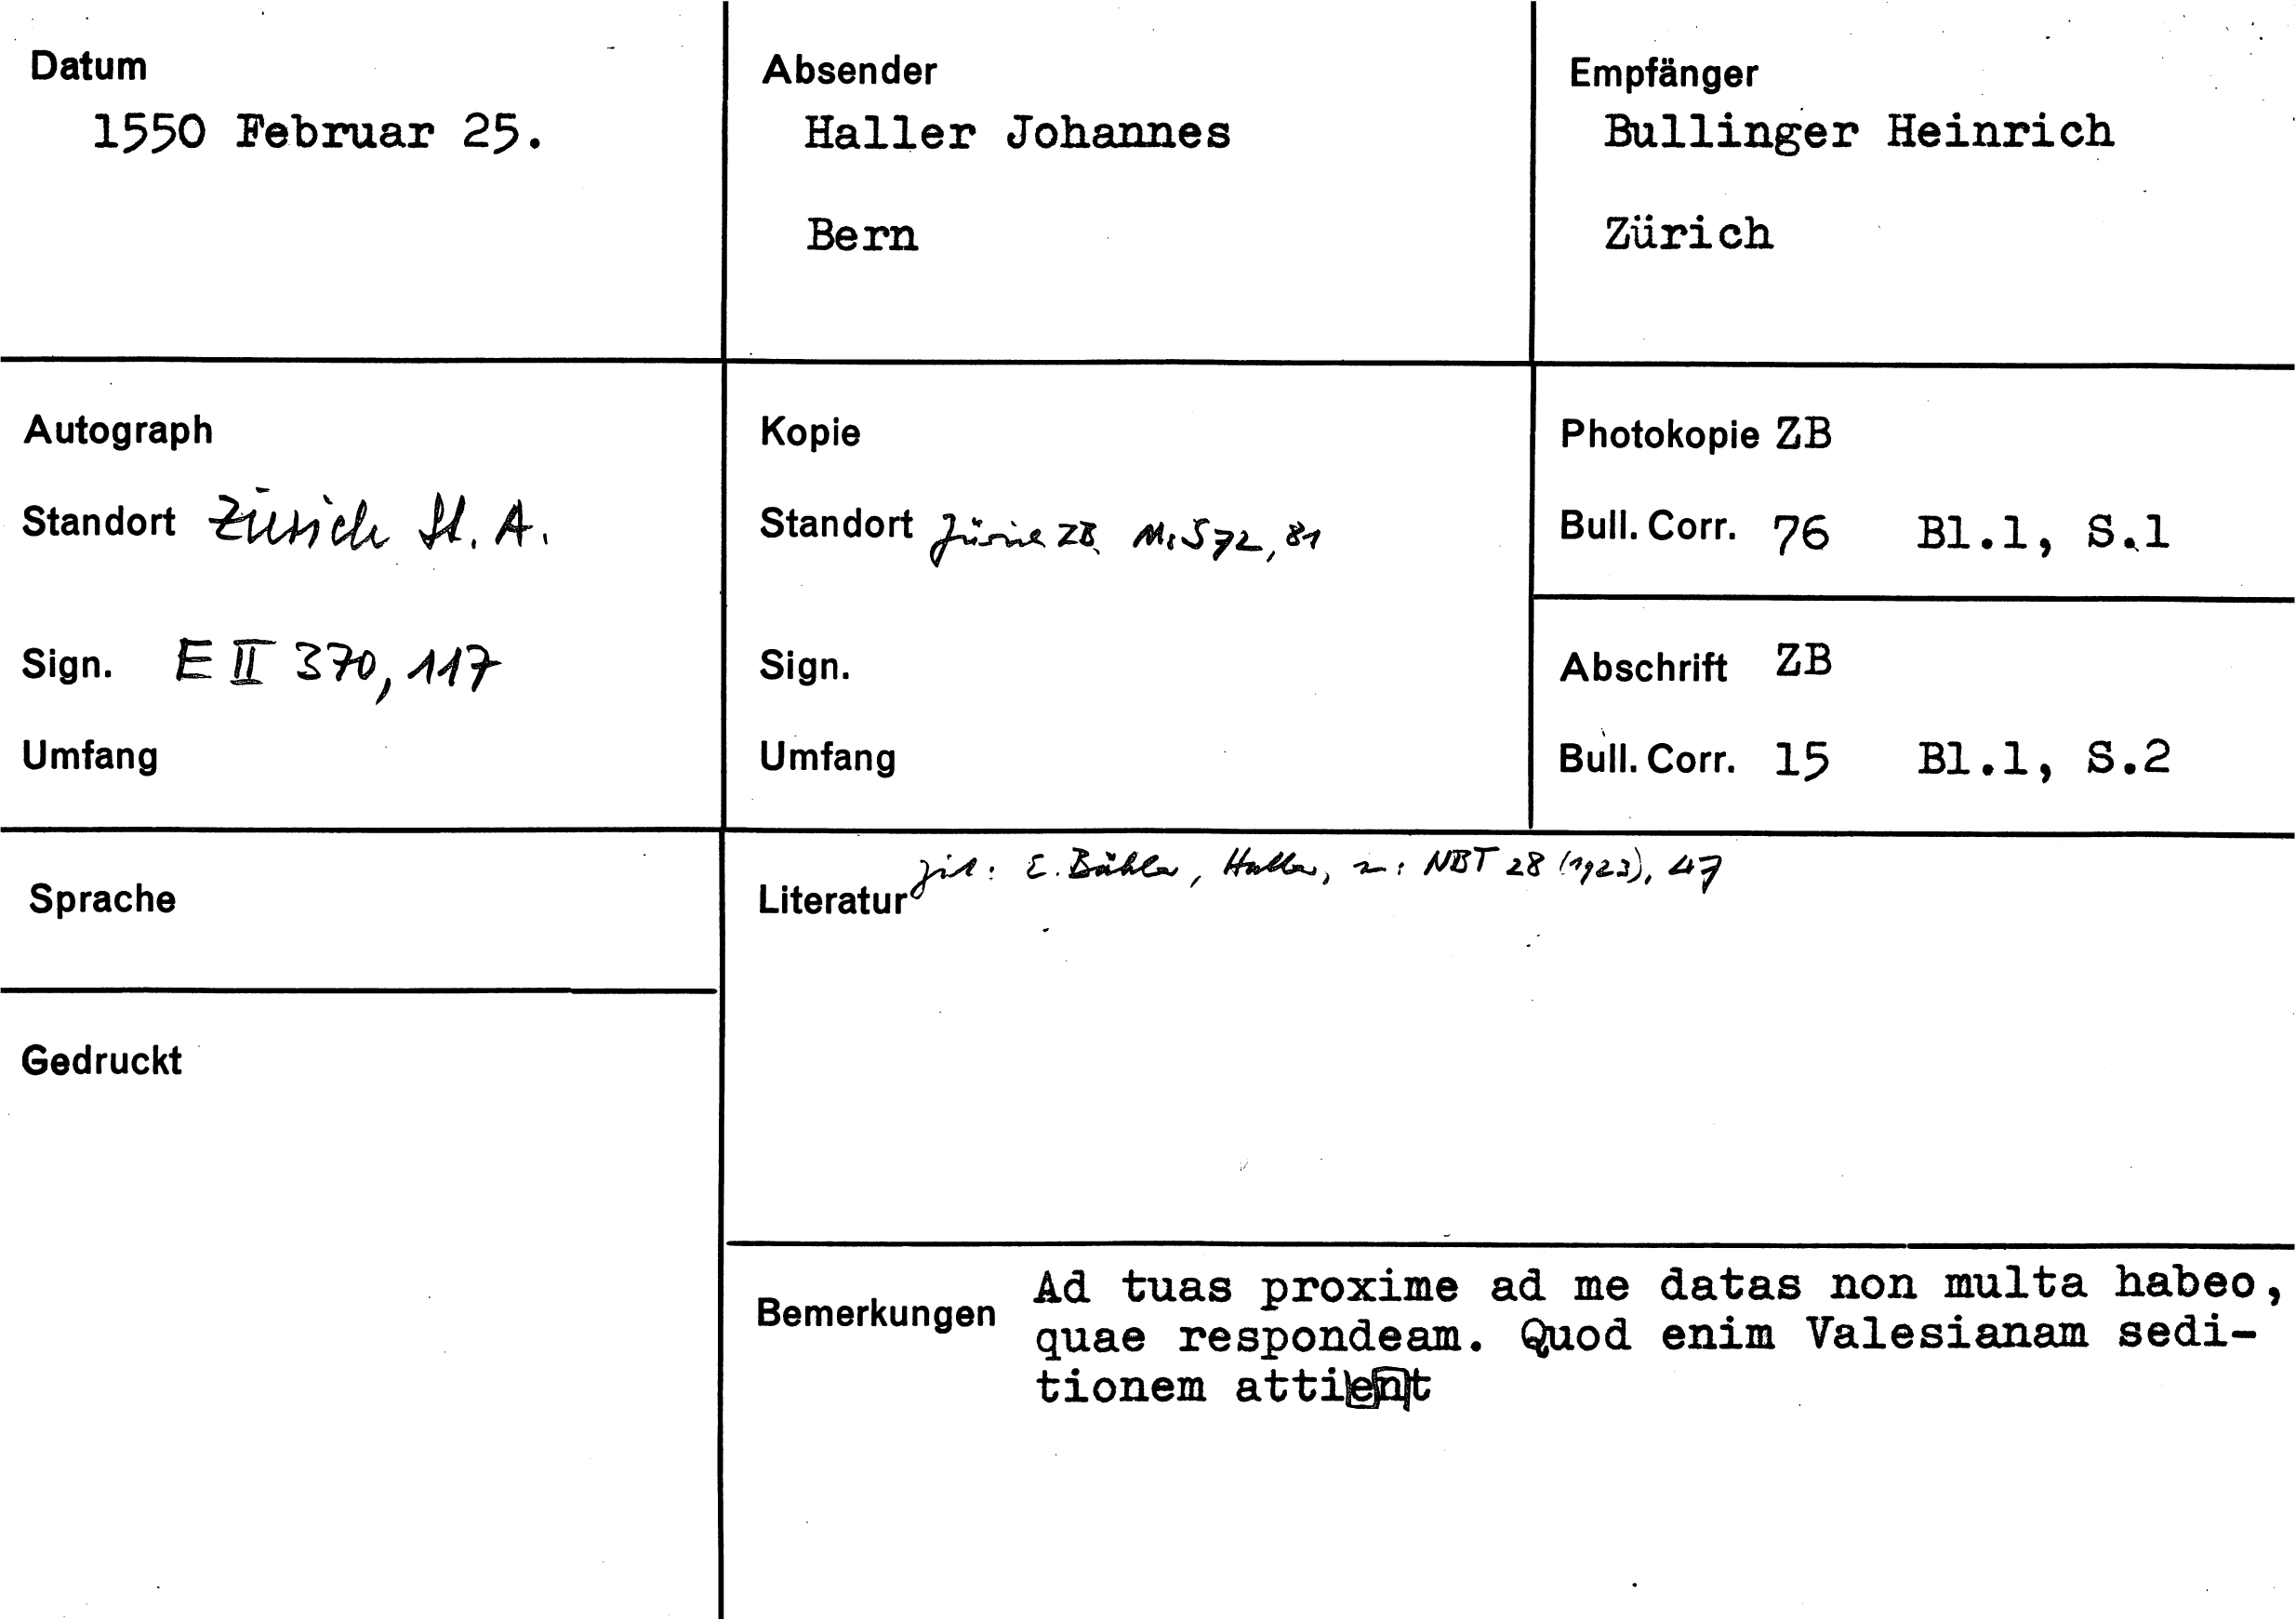 Datum
1550 Februar 25.
Absender
Haller Johannes
Bern
Empfänger
Bullinger Heinrich
Zürich
Autograph
Standort Zürich St. A.
Sign. E II 370, 117
Umfang
Kopie
Standort Zürich ZB, Ms S 72, 81
Sign.
Umfang
Photokopie ZB
Bull. Corr. 76 Bl.1, S.1
Abschrift ZB
Bull. Corr. 15 Bl.1, S.2
Sprache
Gedruckt
Literatur zit: E. Bähler, Haller, in: NBT 28 (1923), 47
Bemerkungen Ad tuas proxime ad me datas non multa habeo,
quae respondeam. Quod enim Valesianam sedi-
tionem attient